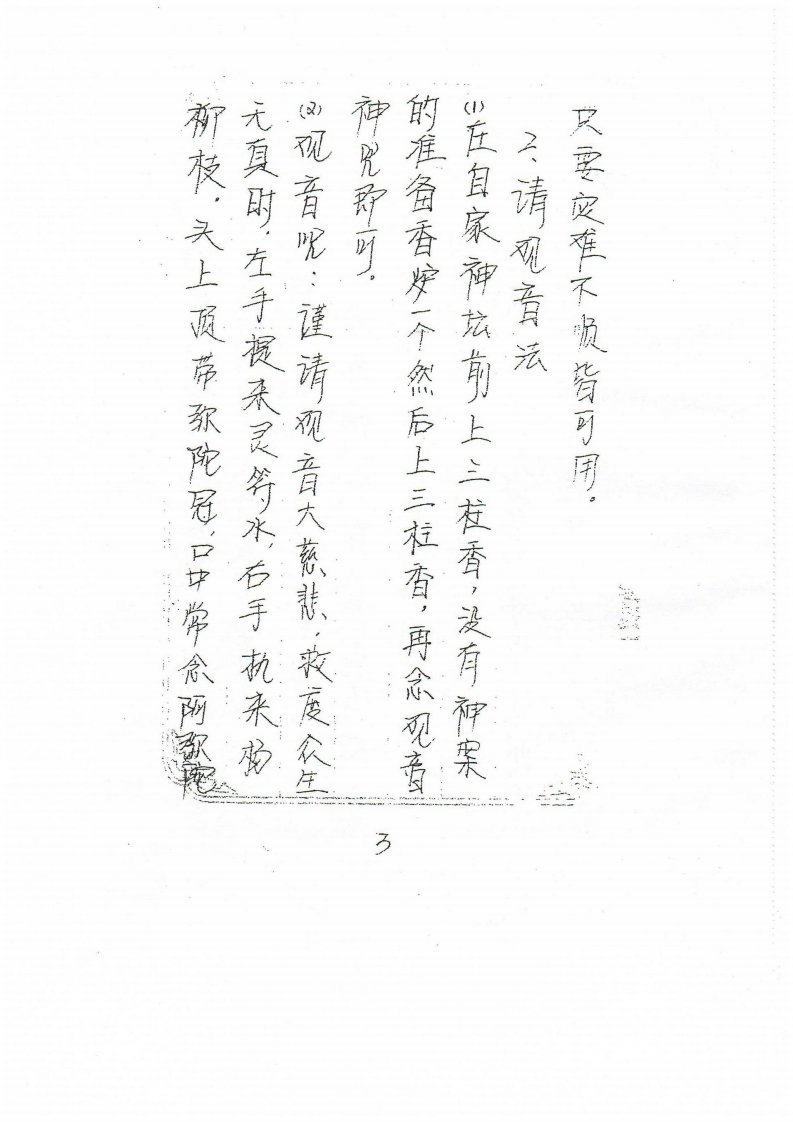 只要灾难不顺皆可用。
2、请观音法
(1)在自家神坛前上三柱香，没有神案
的准备香炉一个然后上三柱香，再念观音
神咒即可。
(2)观音咒：谨请观音大慈悲，救度众生
无真时，左手提来灵符水，右手执来杨
柳枝。头上顶带弥陀冠，口中常念阿弥陀
3